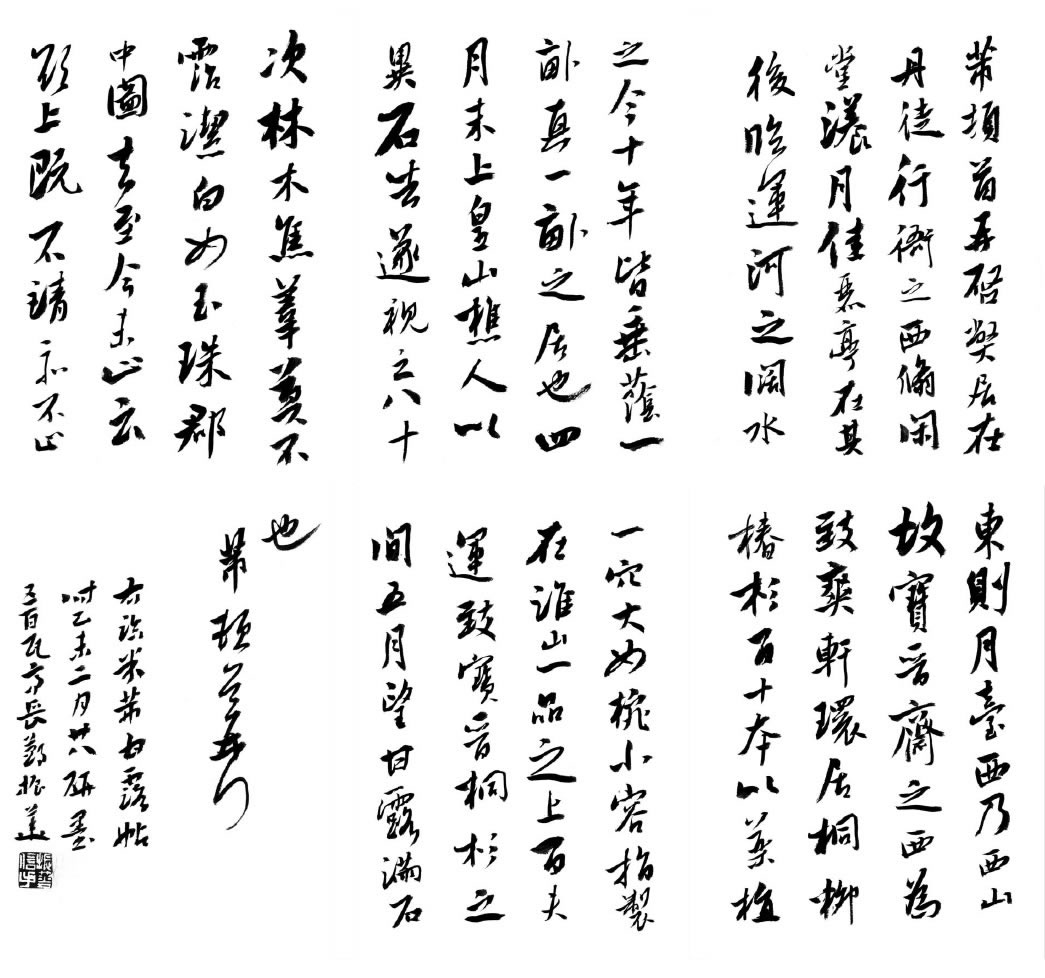 芾頓首再啓弊居在
丹徒行衙之西翛閑
堂漾月佳麗亭在其
後臨運河之闊水
東則月臺西乃西山
故寶晉齋之西為
致爽軒環居桐柳
椿杉百十本以藥植
之今十年皆垂蔭一
畝真一畝之居也四
月末上皇山樵人以
異石告遂視之八十
一穴大如椀小容指製
在淮山一品之上百夫
運致寶晉桐杉之
間五月望甘露滿石
次林木焦葦莫不
霑潔白如玉珠郡
中圖去至今未止云
欲上既不請亦不止
也
芾頓首再行
右臨米芾甘露帖
時乙未二月廿八研墨
百瓦齋長